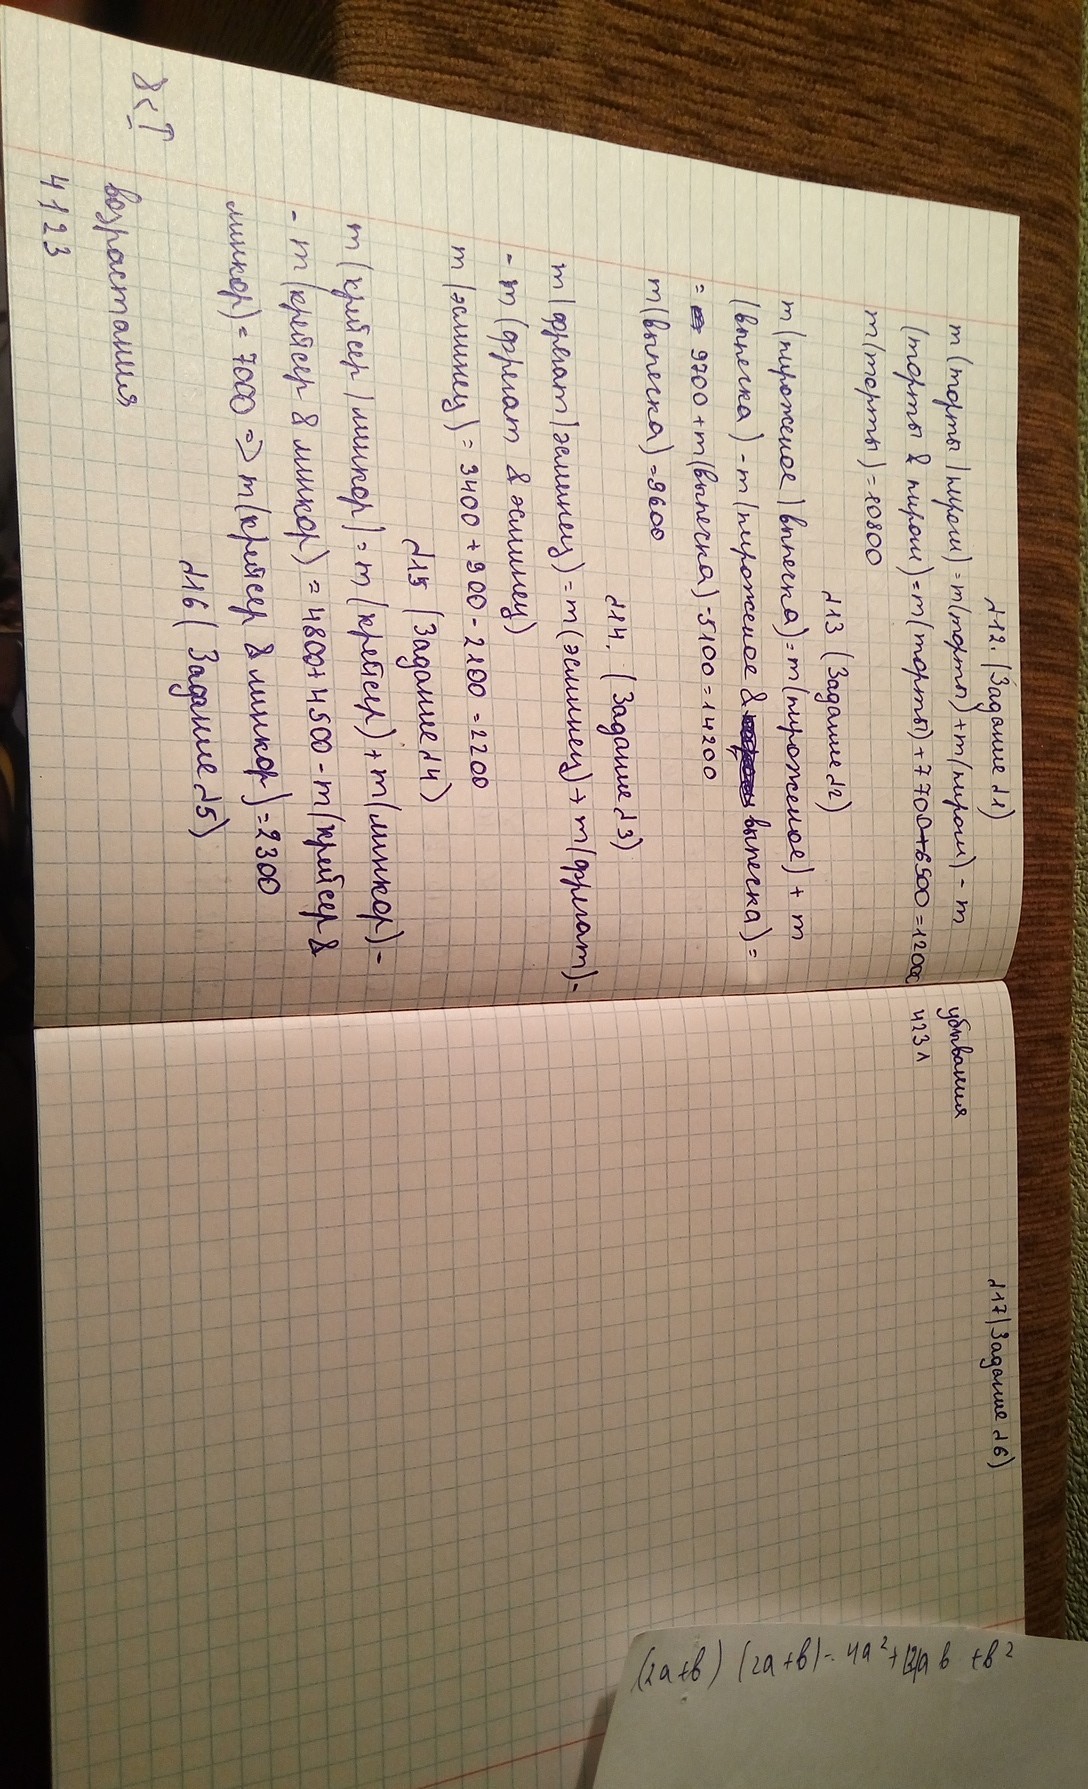 №12. (Задание №1)
m (торты | пироги) = m(торты) + m(пироги) - m
(торты & пироги) = m(торты) + 7700 + 6500 = 12000
m(торты) = 10800
№13 (Задание №2)
m(пирожное | выпечка) = m(пирожное) + m
(выпечка) - m(пирожное & выпечка) =
= 9700 + m(выпечка) - 5100 = 14200
m(выпечка) = 9600
№14. (Задание №3)
m(фрегат | эсминец) = m(эсминец) + m(фрегат) -
- m(фрегат & эсминец)
m(эсминец) = 3400 + 900 - 2100 = 2200
№15 (Задание №4)
m(крейсер | линкор) = m(крейсер) + m(линкор) -
- m(крейсер & линкор) = 4800 + 4500 - m(крейсер &
линкор) = 7000 => m(крейсер & линкор) = 2300
№16 (Задание №5)
& < |
возрастания
4123
убывания
4231
№17 (Задание №6)
(2a+b) (2a+b) = 4a²+ ab +b²